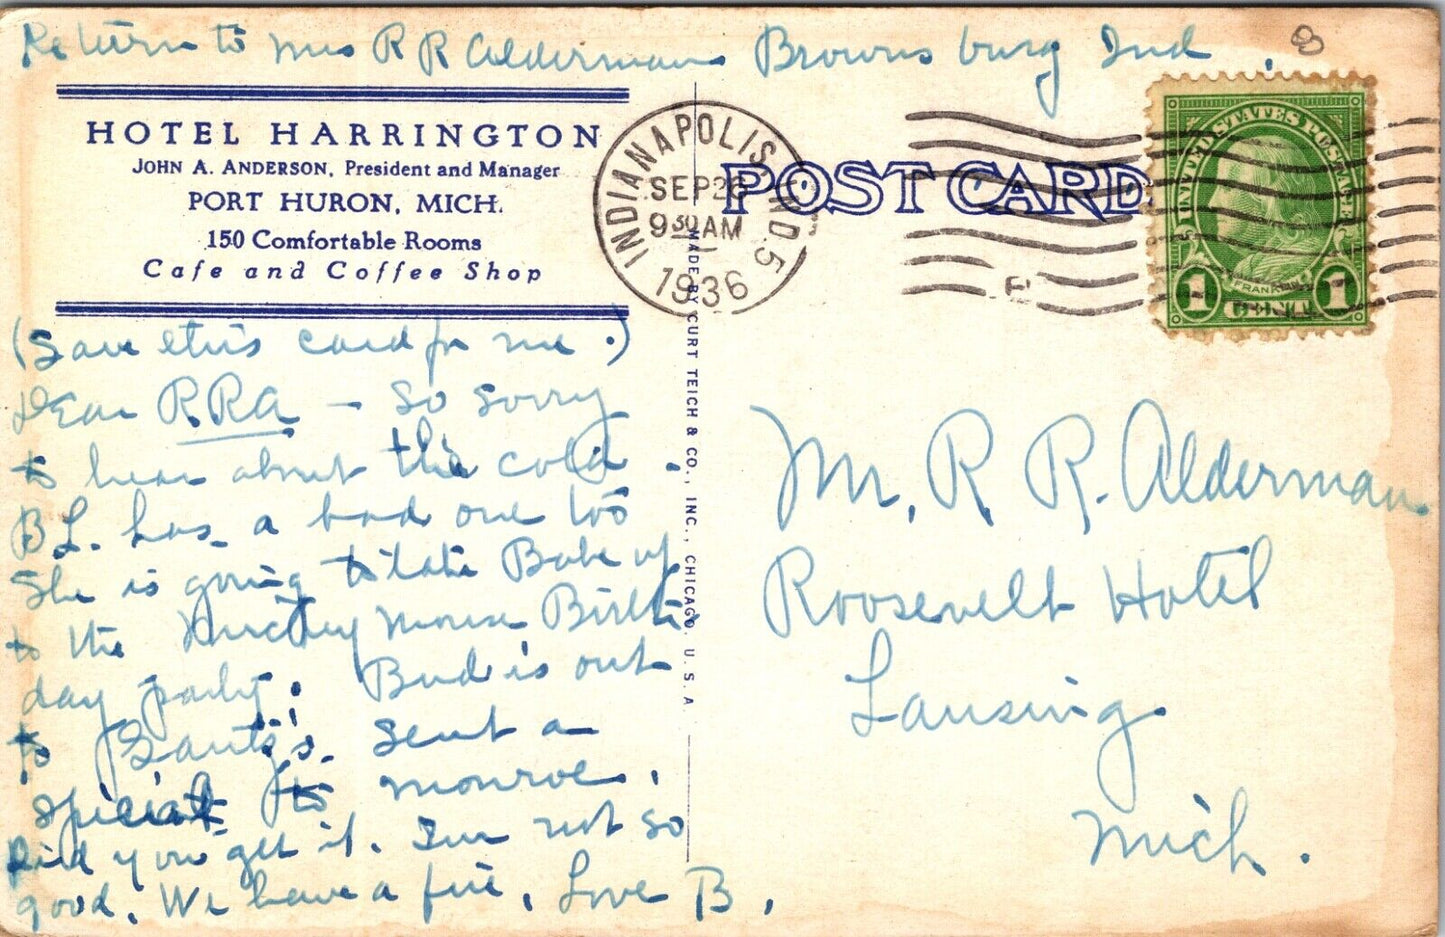 Return to Mrs R R Alderman Brownsburg Ind.
8
HOTEL HARRINGTON
JOHN A. ANDERSON, President and Manager
PORT HURON, MICH.
150 Comfortable Rooms
Cafe and Coffee Shop
INDIANAPOLIS, IND. 5
SEP 26
9 30 AM
1936
POST CARD
UNITED STATES POSTAGE
FRANKLIN
1 CENT 1
MADE BY CURT TEICH & CO., INC., CHICAGO, U.S.A
(Save this card for me.)
Dear RRA - So sorry
to hear about the cold.
B L. has a bad one too
She is going to take Babe up
to the Mickey Mouse Birth
day party. Bud is out
to . Sent a
special to Monroe.
Did you get it. I'm not so
good. We have a fire. Love B.
Mr. R R. Alderman.
Roosevelt Hotel
Lansing.
Mich.